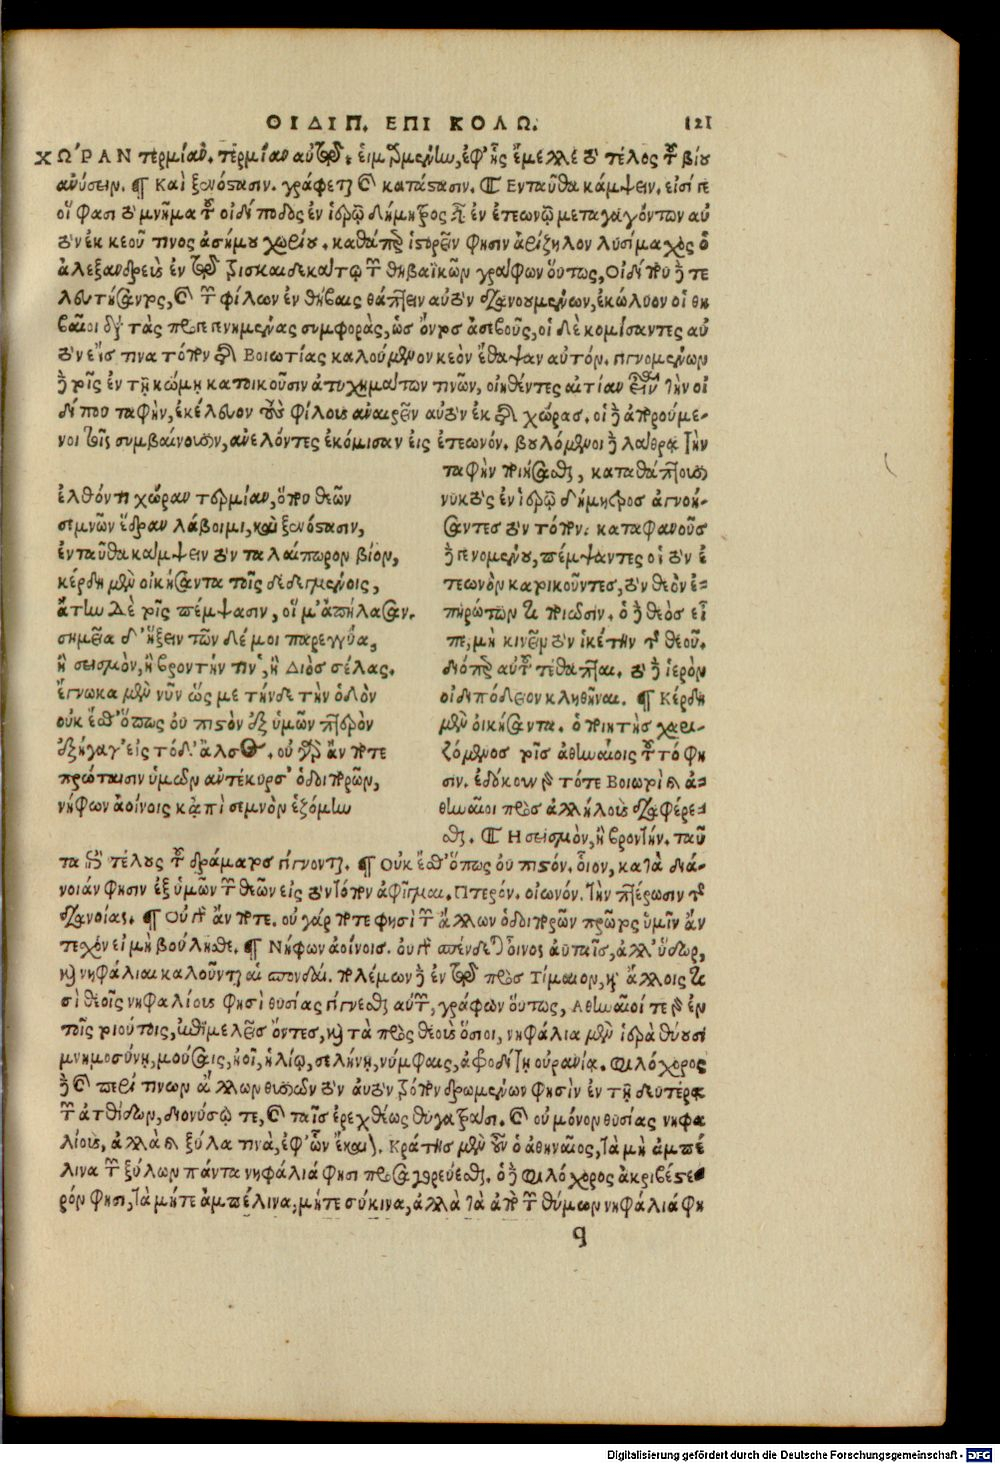 ΟΙΔΙΠ. ΕΠΙ ΚΟΛΩ. 121
ΧΩΡΑΝ τερμίαν. τερμίαν αὐτῷ, εἱμαρμένην, ἐφ' ἧς ἔμελλε τὸ τέλος τοῦ βίου
ἀνύσειν. ¶ Καὶ ξενόστασιν. γράφεται καὶ κατάστασιν. ¶ Ενταῦθα κάμψειν. εἰσί γε
οἵ φασι τὸ μνῆμα τοῦ οἰδίποδος ἐν ἱερῷ δήμητρος εἶναι ἐν ἐτεωνῷ μεταγαγόντων αὐ
τὸν ἐκ κεοῦ τινος ἀσήμου χωρίου. καθάπερ ἱστορεῖν φησιν ἀρίζηλον λυσίμαχος ὁ
ἀλεξανδρεὺς ἐν τῷ τρισκαιδεκάτῳ τῶν θηβαϊκῶν γράφων οὕτως, Οἰδίπου δὲ τε
λευτήσαντος, καὶ τῶν φίλων ἐν θήβαις θάπτειν αὐτὸν διανοουμένων, ἐκώλυον οἱ θη
βαῖοι διὰ τὰς προγεγενημένας συμφορὰς, ὡς ὄντος ἀσεβοῦς, οἱ δὲ κομίσαντες αὐ
τὸν εἴς τινα τόπον τῆς Βοιωτίας καλούμενον κεὸν ἔθαψαν αὐτόν. γιγνομένων
δὲ τοῖς ἐν τῇ κώμῃ κατοικοῦσιν ἀτυχημάτων τινῶν, οἰηθέντες αἰτίαν εἶναι τὴν οἰ
δίπου ταφὴν, ἐκέλευον τοὺς φίλους ἀναιρεῖν αὐτὸν ἐκ τῆς χώρας. οἱ δὲ ἀπορούμε-
νοι τοῖς συμβαίνουσιν, ἀνελόντες ἐκόμισαν εἰς ἐτεωνόν. βουλόμενοι δὲ λάθρᾳ τὴν
ταφὴν ποιήσασθαι, καταθάπτουσι
νυκτὸς ἐν ἱερῷ δήμητρος ἀγνοή-
σαντες τὸν τόπον. καταφανοῦς
δὲ γενομένου, πέμψαντες οἱ τὸν ἐ
τεωνὸν κατοικοῦντες, τὸν θεὸν ἐ-
πηρώτων τί ποιῶσιν. ὁ δὲ θεὸς εἶ
πε, μὴ κινεῖν τὸν ἱκέτην τοῦ θεοῦ.
διόπερ αὐτοῦ τέθαπται. τὸ δὲ ἱερὸν
οἰδιπόδειον κληθῆναι. ¶ Κέρδη
μὲν οἰκήσαντα. ὁ ποιητὴς χαρι-
ζόμενος τοῖς ἀθηναίοις τοῦτό φη
σιν. ἐδόκουν γὰρ τότε Βοιωτοὶ καὶ ἀ-
θηναῖοι πρὸς ἀλλήλους διαφέρε-
σθαι. ¶ Η σεισμὸν, ἢ βροντήν. ταῦ
ἐλθόντι χώραν τερμίαν, ὅπου θεῶν
σεμνῶν ἕδραν λάβοιμι, καὶ ξενόστασιν,
ἐνταῦθα κάμψειν τὸν ταλαίπωρον βίον,
κέρδη μὲν οἰκήσαντα τοῖς δεδεγμένοις,
ἄτην Δὲ τοῖς πέμψασιν, οἵ μ' ἀπήλασαν.
σημεῖα δ' ἥξειν τῶν δέ μοι παρεγγύα,
ἢ σεισμὸν, ἢ βροντήν τιν', ἢ Διὸς σέλας.
ἔγνωκα μὲν νῦν ὥς με τήνδε τὴν ὁδὸν
οὐκ ἔσθ' ὅπως οὐ πιστὸν ἐξ ὑμῶν πτερὸν
ἐξήγαγ' εἰς τόδ' ἄλσος. οὐ γὰρ ἄν ποτε
πρώταισιν ὑμῶν ἀντέκυρσ' ὁδοιπορῶν,
νήφων ἀοίνοις κἀπὶ σεμνὸν ἑζόμην
τα τοῦ τέλους τοῦ δράματος γίγνονται. ¶ Οὐκ ἔσθ' ὅπως οὐ πιστόν. οἷον, κατὰ διά-
νοιάν φησιν ἐξ ὑμῶν τῶν θεῶν εἰς τὸν τόπον ἀφῖγμαι. Πτερόν. οἰωνόν. τὴν πτέρωσιν τῆς
διανοίας. ¶ Οὐ γὰρ ἄν ποτε. οὐ γάρ ποτε φησὶ τῶν ἄλλων ὁδοιπορῶν πρῶτος ὑμῖν ἂν
τεχὸν εἰ μὴ βούλησθε. ¶ Νήφων ἀοίνοις. οὐ γὰρ σπένδεται οἶνος αὐταῖς, ἀλλ' ὕδωρ,
καὶ νηφάλιαι καλοῦνται αἱ σπονδαί. πολέμων δὲ ἐν τῷ πρὸς Τίμαιον, καὶ ἄλλοις τι
σὶ θεοῖς νηφαλίους φησὶ θυσίας γίγνεσθαι αὐτῶν, γράφων οὕτως, Αθηναῖοί τε γὰρ ἐν
τοῖς τοιούτοις, ἐπιμελεῖς ὄντες, καὶ τὰ πρὸς θεοὺς ὅσιοι, νηφάλια μὲν ἱερὰ θύουσι
μνημοσύνῃ, μούσαις, ἠοῖ, ἡλίῳ, σελήνῃ, νύμφαις, ἀφροδίτῃ οὐρανίᾳ. Φιλόχορος
δὲ καὶ περί τινων ἄλλων θυσιῶν τὸν αὐτὸν τρόπον δρωμένων φησὶν ἐν τῇ δευτέρᾳ
τῶν ἀτθίδων, διονύσῳ τε, καὶ ταῖς ἐρεχθέως θυγατράσι. καὶ οὐ μόνον θυσίας νηφα
λίους, ἀλλὰ καὶ ξύλα τινὰ, ἐφ' ὧν ἔκαιον. Κράτης μὲν οὖν ὁ ἀθηναῖος, τὰ μὴ ἀμπέ
λινα τῶν ξύλων πάντα νηφάλιά φησι προσαγορεύεσθαι. ὁ δὲ Φιλόχορος ἀκριβέστε
ρόν φησι, τὰ μήτε ἀμπέλινα, μήτε σύκινα, ἀλλὰ τὰ ἀπὸ τῶν θύμων νηφάλιά φη
q
Digitalisierung gefördert durch die Deutsche Forschungsgemeinschaft - DFG